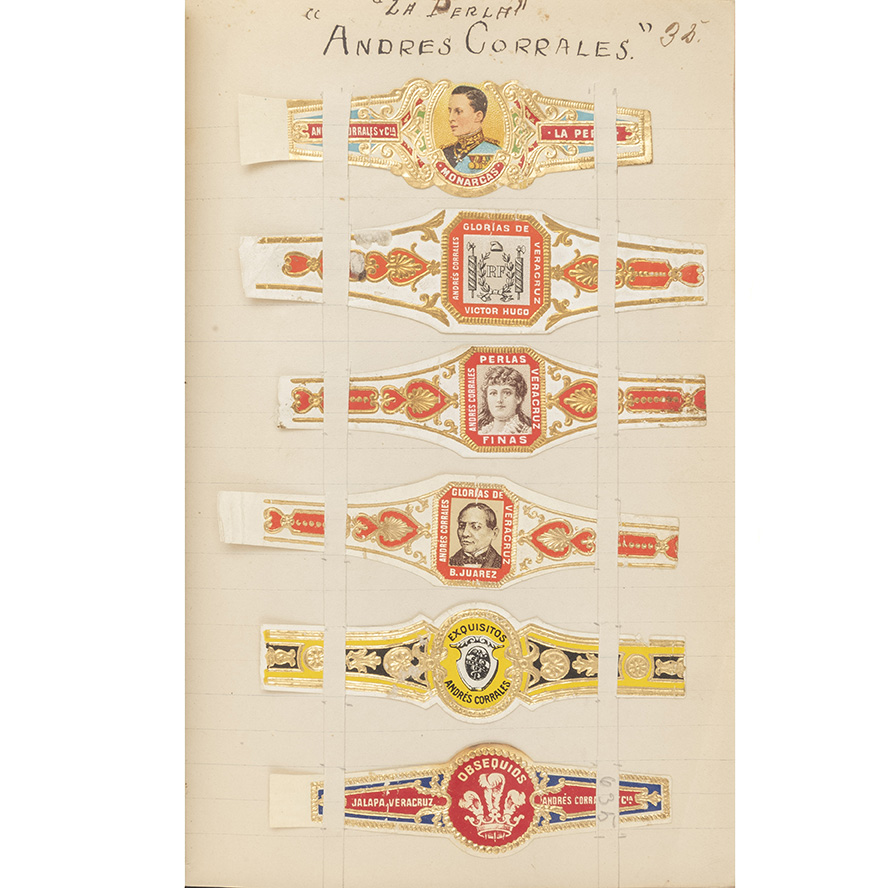 " "LA PERLA"
ANDRES CORRALES." 35.
ANDRES CORRALES Y CIA
MONARCAS
· LA PER
GLORIAS DE
ANDRÉS CORRALES
VERACRUZ
RF
VICTOR HUGO
PERLAS
ANDRÉS CORRALES
VERACRUZ
FINAS
GLORIAS DE
ANDRÉS CORRALES
VERACRUZ
B. JUAREZ
EXQUISITOS
ANDRÉS CORRALES.
OBSEQUIOS
JALAPA, VERACRUZ
ANDRÉS CORRA Y CIA.
635